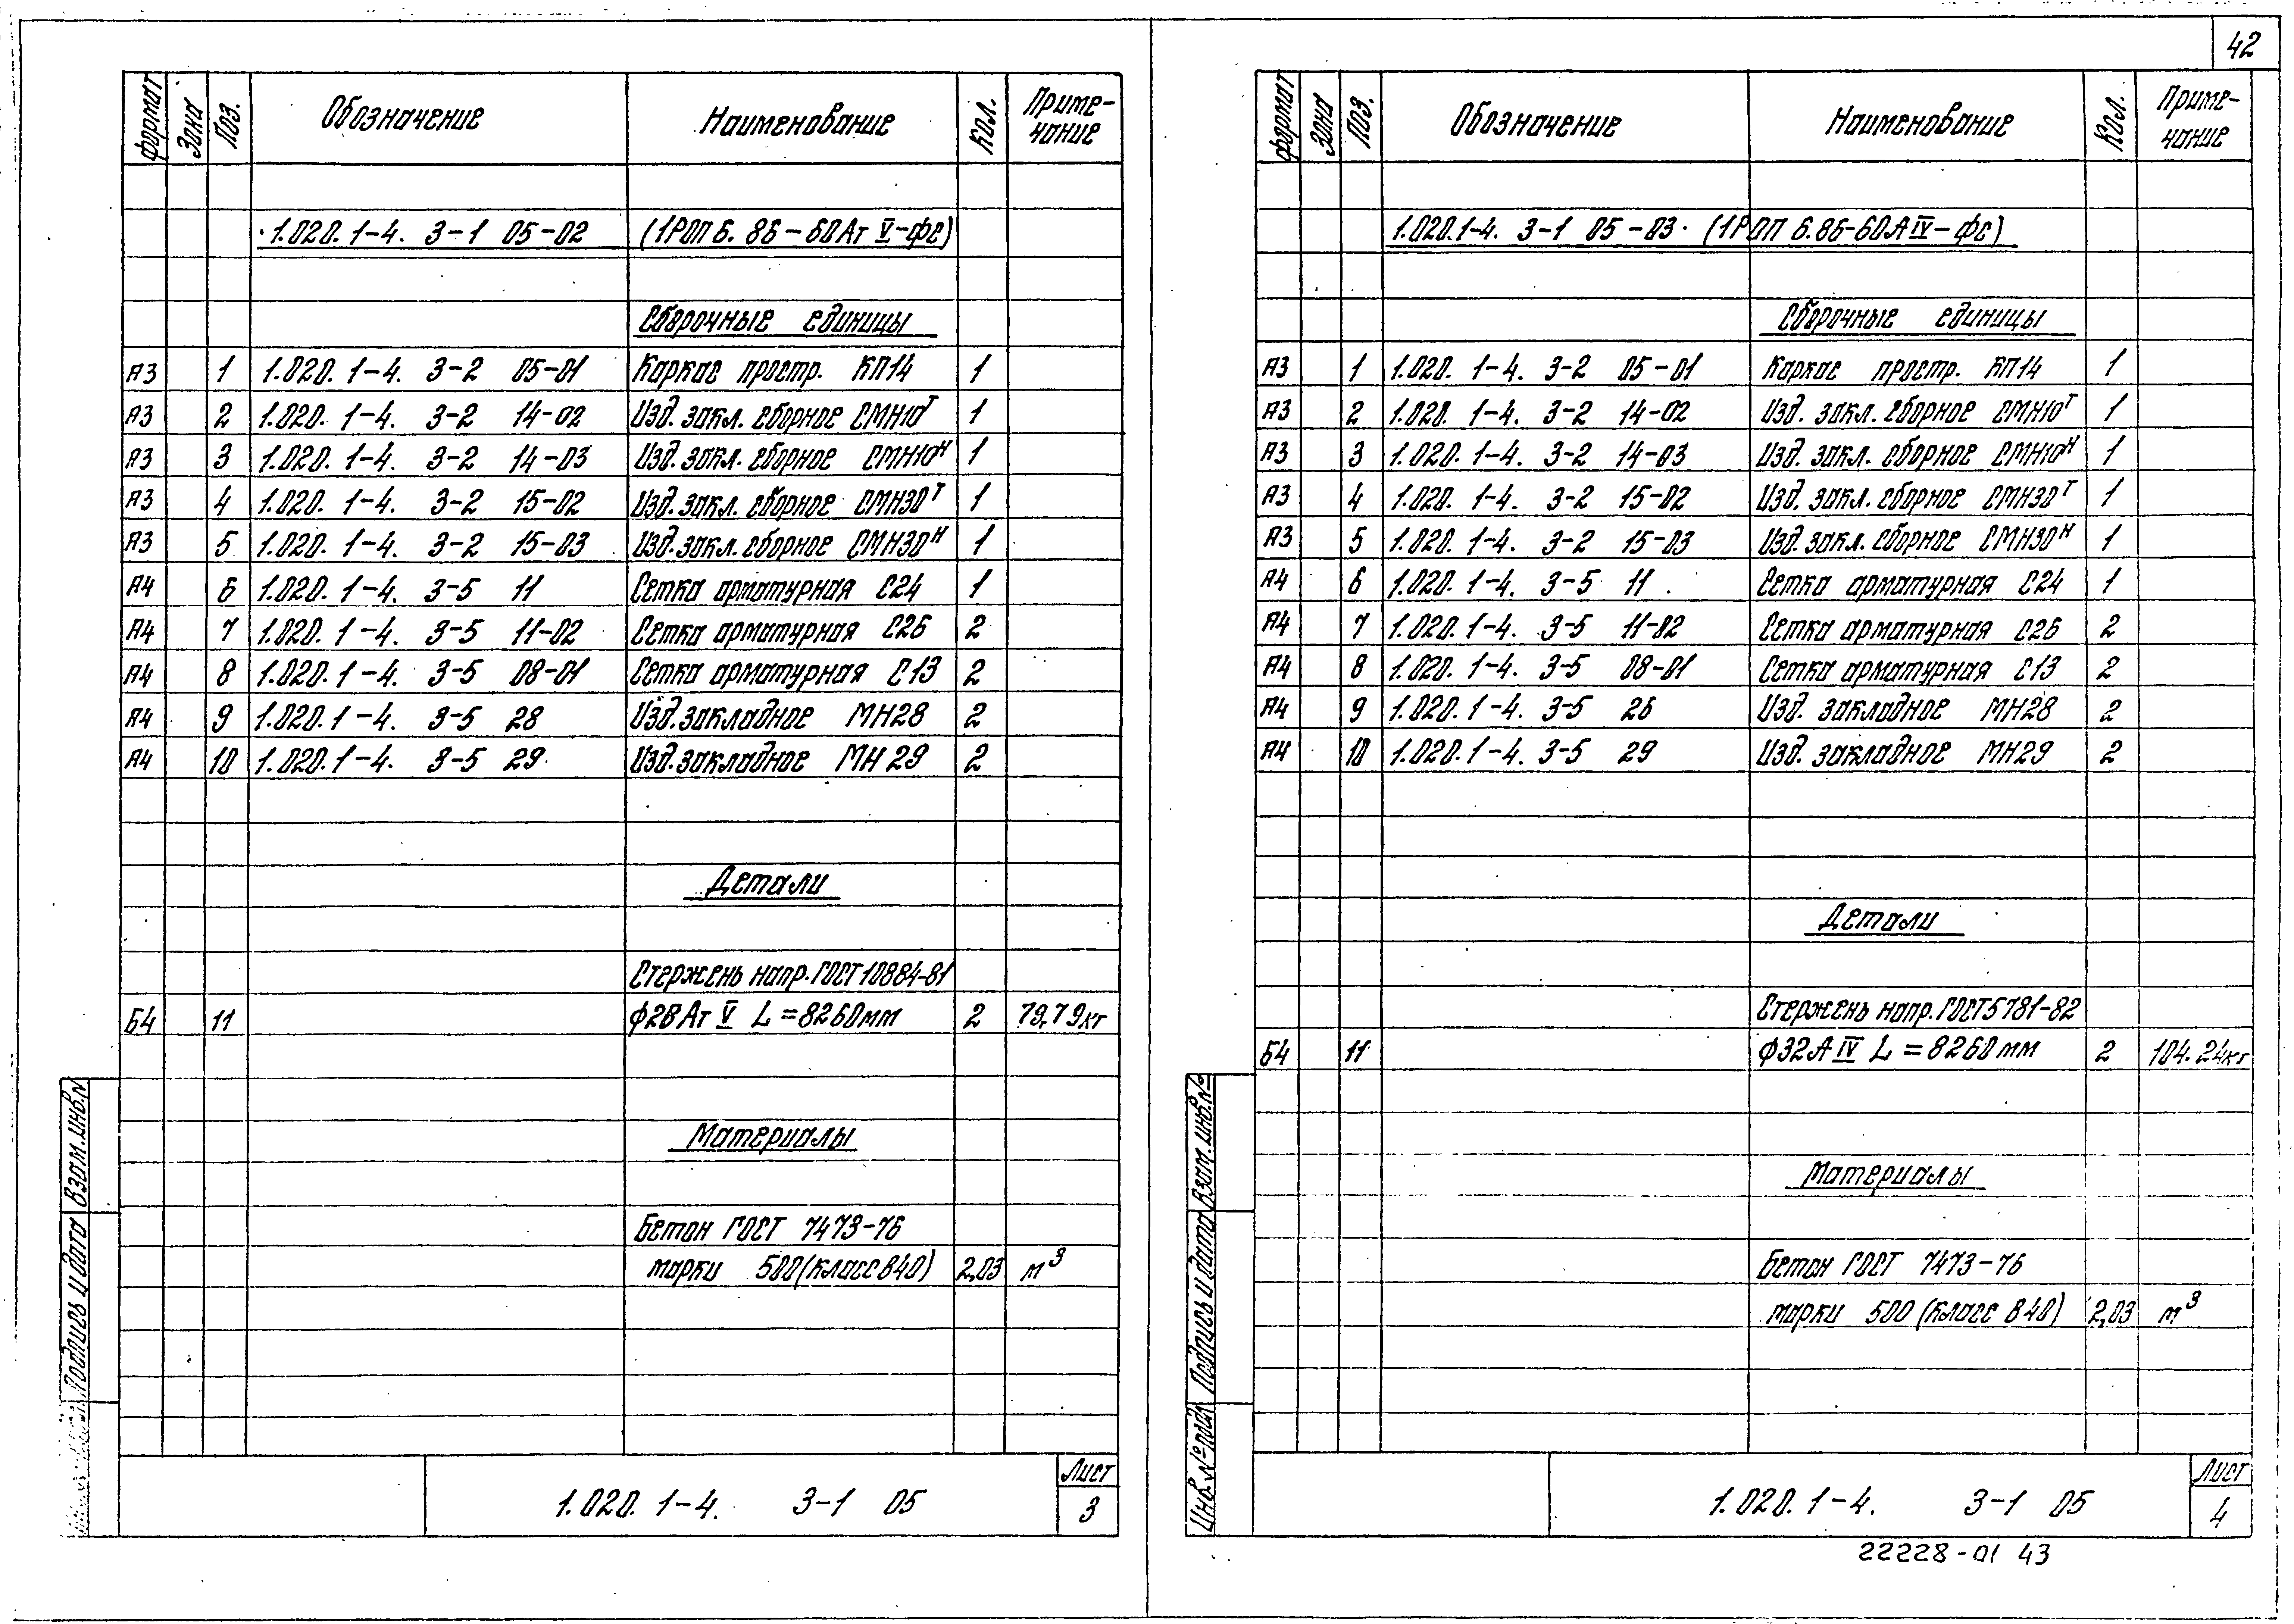 42
Формат Зона Поз. Обозначение Наименование Кол. Приме-чание
1.020.1-4. 3-1 05-02 (1РОП 6.86-60Ат V-фс)
Сборочные единицы
А3 1 1.020.1-4. 3-2 05-01 Каркас простр. КП14 1
А3 2 1.020.1-4. 3-2 14-02 Изд. закл. сборное СМН10Т 1
А3 3 1.020.1-4. 3-2 14-03 Изд. закл. сборное СМН10Н 1
А3 4 1.020.1-4. 3-2 15-02 Изд. закл. сборное СМН30Т 1
А3 5 1.020.1-4. 3-2 15-03 Изд. закл. сборное СМН30Н 1
А4 6 1.020.1-4. 3-5 11 Сетка арматурная С24 1
А4 7 1.020.1-4. 3-5 11-02 Сетка арматурная С26 2
А4 8 1.020.1-4. 3-5 08-01 Сетка арматурная С13 2
А4 9 1.020.1-4. 3-5 28 Изд. закладное МН28 2
А4 10 1.020.1-4. 3-5 29 Изд. закладное МН29 2
Детали
Стержень напр. ГОСТ 10884-81
Б4 11 ф28 Ат V L=8260мм 2 79,79кг
Материалы
Бетон ГОСТ 7473-76
марки 500 (класс В40) 2,03 м³
Взам. инв. №
Подпись и дата
1.020.1-4. 3-1 05
Лист
3
Формат Зона Поз. Обозначение Наименование Кол. Приме-чание
1.020.1-4. 3-1 05-03 (1РОП 6.86-60А IV-фс)
Сборочные единицы
А3 1 1.020.1-4. 3-2 05-01 Каркас простр. КП14 1
А3 2 1.020.1-4. 3-2 14-02 Изд. закл. сборное СМН10Т 1
А3 3 1.020.1-4. 3-2 14-03 Изд. закл. сборное СМН10Н 1
А3 4 1.020.1-4. 3-2 15-02 Изд. закл. сборное СМН30Т 1
А3 5 1.020.1-4. 3-2 15-03 Изд. закл. сборное СМН30Н 1
А4 6 1.020.1-4. 3-5 11 Сетка арматурная С24 1
А4 7 1.020.1-4. 3-5 11-02 Сетка арматурная С26 2
А4 8 1.020.1-4. 3-5 08-01 Сетка арматурная С13 2
А4 9 1.020.1-4. 3-5 26 Изд. закладное МН28 2
А4 10 1.020.1-4. 3-5 29 Изд. закладное МН29 2
Детали
Стержень напр. ГОСТ 5781-82
Б4 11 ф32А IV L=8260мм 2 104.24кг
Материалы
Бетон ГОСТ 7473-76
марки 500 (класс В40) 2,03 м³
Взам. инв. №
Подпись и дата
Инв. № подл
1.020.1-4. 3-1 05
Лист
4
22228-01 43